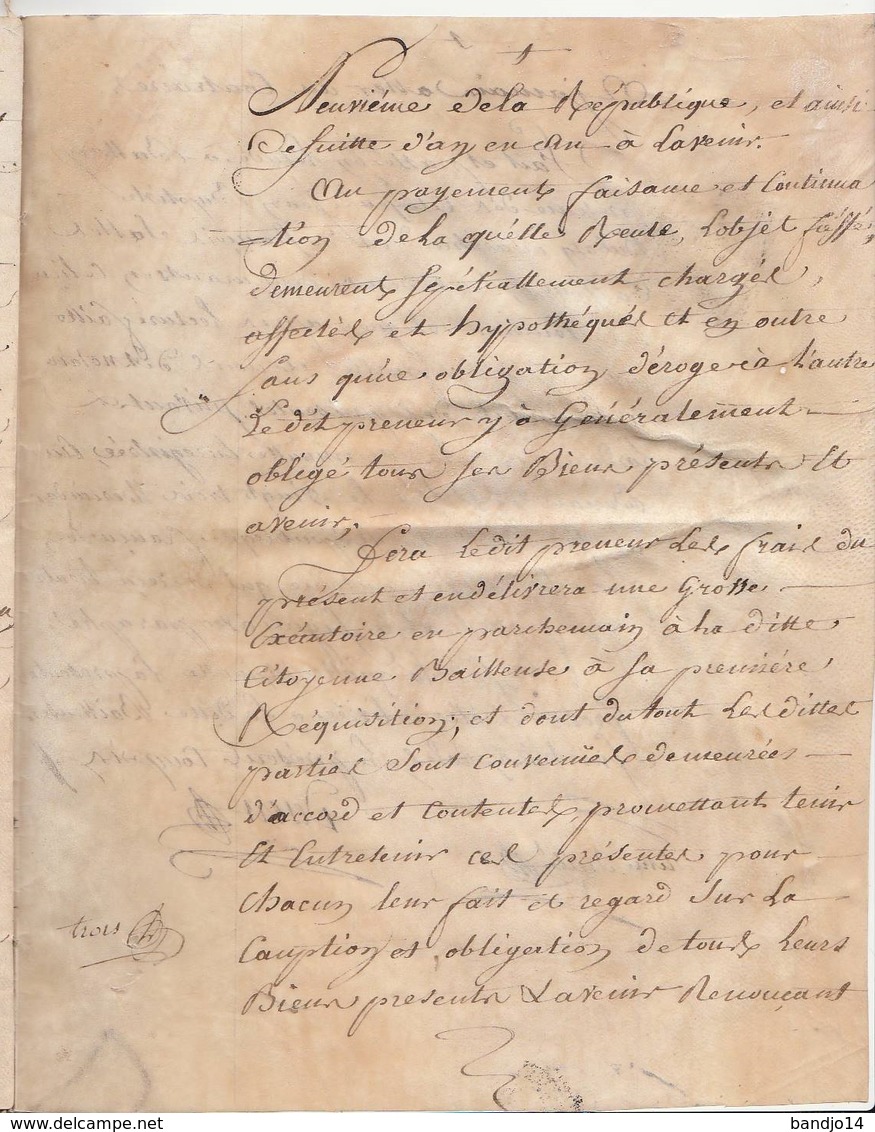 Neuviéme dela Republique, et ainsi
Desuitte d'an en An à Lavenir.
Au payement faisance et Continua
tion dela quelle Rente, Lobjet fieffé,
demeurent Spétiallement chargés,
affectés et hypothéqués Et en outre
Sans qu'une obligation déroge à L'autre
Ledit preneur y à Généralement
obligé tous ses Biens présents Et
avenir,
Fera Ledit preneur Les frais du
présent et en délivrera une Grosse
Exécutoire en parchemain à La ditte
Citoyenne Bailleuse à Sa premiére
Réquisition; et dont du tout Les dittes
parties Sont convenuës demeurées
d'accord et Contentes, promettant tenir
Et Entretenir ces présentes pour
Chacun leur fait et regard Sur La
Cauption et obligation de tous Leurs
Biens presents & avenir Renonçant
trois
delcampe.net
bandjo14